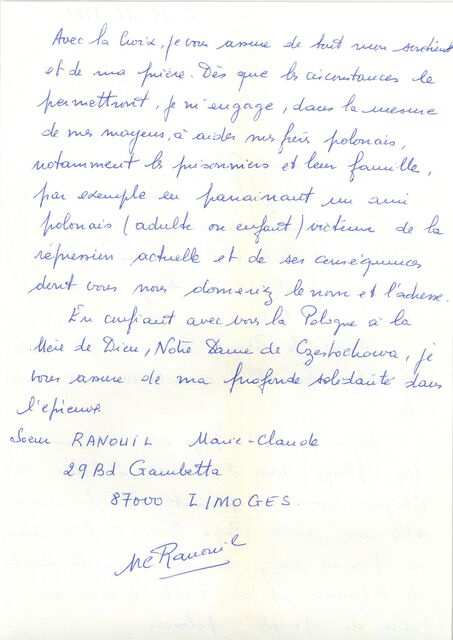 Avec la Croix, je vous assure de tout mon soutien
et de ma prière. Dès que les circonstances le
permettront, je m'engage, dans la mesure
de mes moyens, à aider mes frères polonais,
notamment les prisonniers et leur famille,
par exemple en parrainant un ami
polonais (adulte ou enfant) victime de la
répression actuelle et de ses conséquences
dont vous nous donneriez le nom et l'adresse.
En confiant avec vous la Pologne à la
Mère de Dieu, Notre Dame de Czestochowa, je
vous assure de ma profonde solidarité dans
l'épreuve.
Soeur RANOUIL Marie-Claude
29 Bd Gambetta
87000 LIMOGES.
MC Ranouil